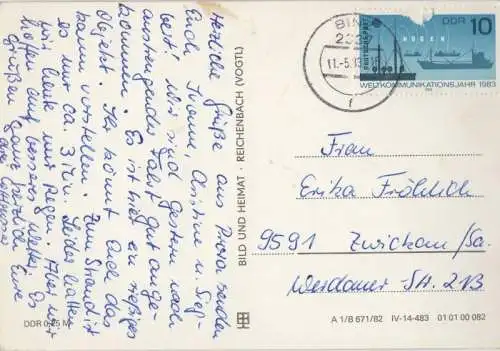 Herzliche Grüße aus Prora senden
Euch Yvonne, Christine u. Sieg-
bert! Wir sind gestern nach
anstrengender Fahrt gut ange-
kommen. Es ist hier ein riesiges
Objekt. Ihr könnt Euch das
kaum vorstellen. Zum Strand ist
es nur ca. 3 Min. Leider hatten
wir heute nur Regen. Aber wir
hoffen auf besseres Wetter. Es
grüßen ganz herzlich Eure
BILD UND HEIMAT · REICHENBACH (VOGTL)
DDR 0,25 M
BIN
11.-5.83
f
DEUTSCHE POST
RÜGEN
DDR 10
WELTKOMMUNIKATIONSJAHR 1983
Frau
Erika Fröhlich
9591 Zwickau/Sa.
Werdauer Str. 21B
A 1/B 671/82 IV-14-483 01 01 00 082